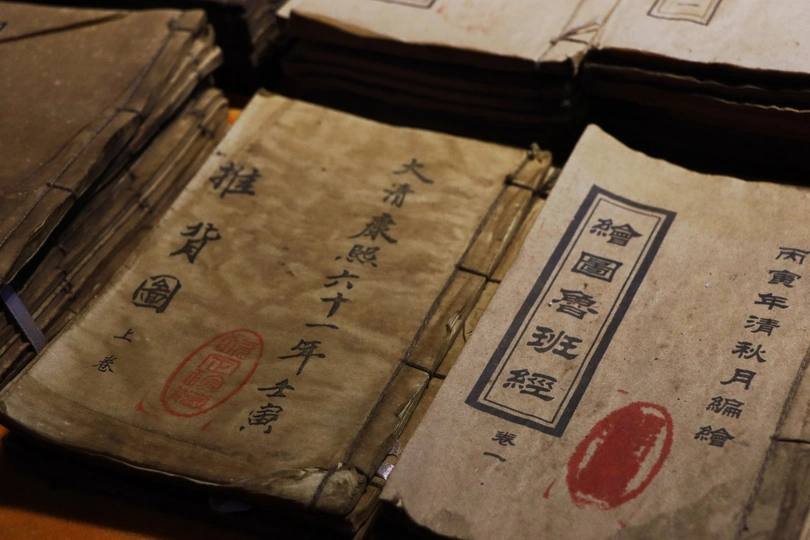 大清康熙六十一年壬寅
推背圖
上卷
丙寅年清秋月編繪
繪圖魯班經
卷一
一